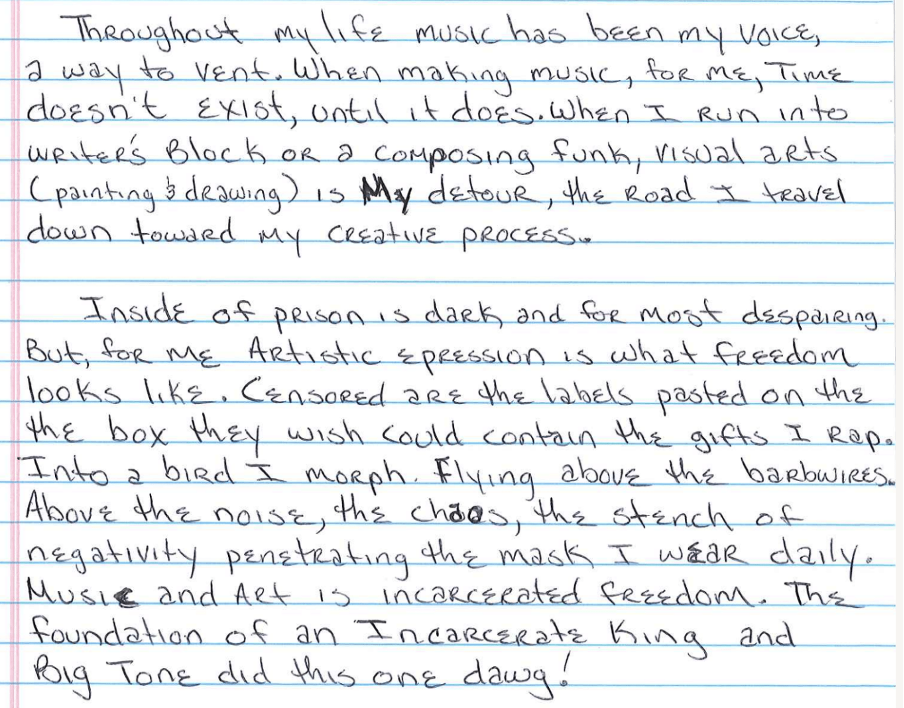 Throughout my life music has been my voice,
a way to vent. When making music, for me, Time
doesn't exist, until it does. When I run into
writer's Block or a composing funk, visual arts
(painting & drawing) is My detour, the Road I travel
down toward my creative process.
Inside of prison is dark and for most despairing.
But, for me Artistic epression is what freedom
looks like. Censored are the labels pasted on the
the box they wish could contain the gifts I Rap.
Into a bird I morph. Flying above the barbwires.
Above the noise, the chaos, the stench of
negativity penetrating the mask I wear daily.
Music and Art is incarcerated freedom. The
foundation of an Incarcerate King and
Big Tone did this one dawg!